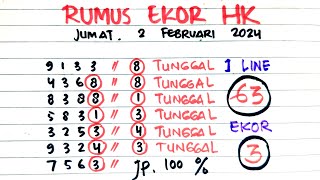 RUMUS EKOR HK
JUMAT. 2 FEBRUARI 2024
9 1 3 3 // 8 TUNGGAL 1 LINE
4 3 6 8 // 8 TUNGGAL
8 3 8 8 // 1 TUNGGAL 63
5 8 3 1 // 3 TUNGGAL
3 2 5 3 // 4 TUNGGAL EKOR
9 3 2 4 // 3 TUNGGAL 3
7 5 6 3 // JP. 100 %